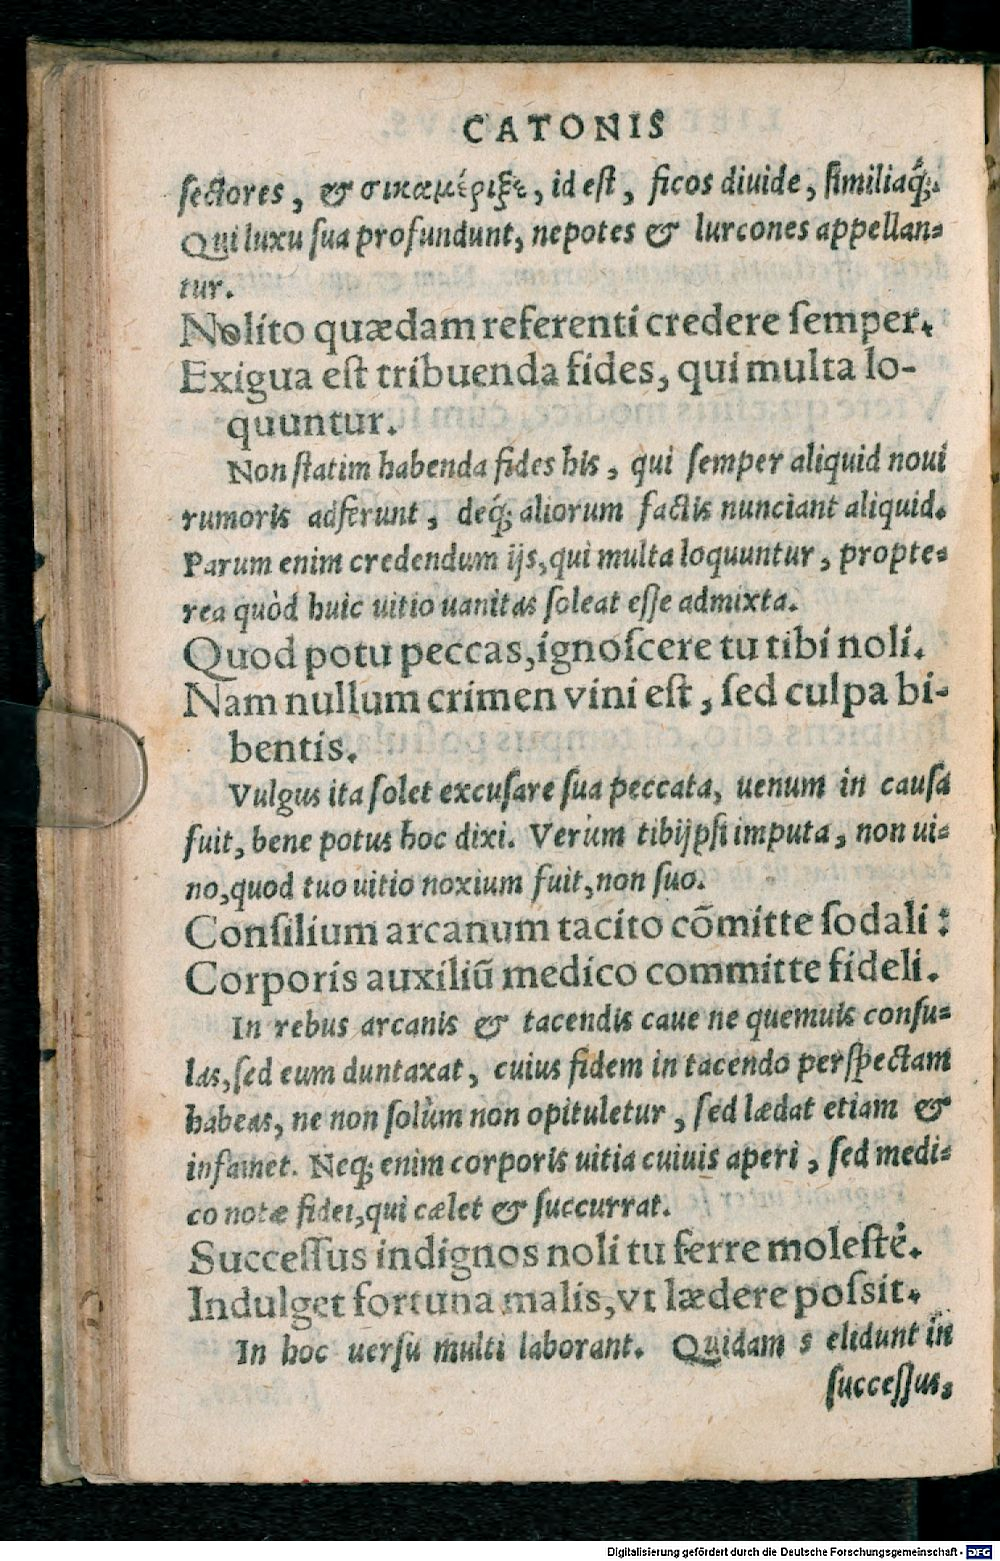 CATONIS
ſectores, & σικαμέριξε, id eſt, ficos diuide, ſimiliaq́;.
Qui luxu ſua profundunt, nepotes & lurcones appellan-
tur.
Nolito quædam referenti credere ſemper.
Exigua eſt tribuenda fides, qui multa lo-
quuntur.
Non ſtatim habenda fides his, qui ſemper aliquid noui
rumoris adferunt, deq́; aliorum factis nunciant aliquid.
Parum enim credendum ijs, qui multa loquuntur, propte-
rea quòd huic uitio uanitas ſoleat eſſe admixta.
Quod potu peccas, ignoſcere tu tibi noli.
Nam nullum crimen vini eſt, ſed culpa bi-
bentis.
Vulgus ita ſolet excuſare ſua peccata, uenum in cauſa
fuit, bene potus hoc dixi. Verùm tibijpſi imputa, non ui-
no, quod tuo uitio noxium fuit, non ſuo.
Conſilium arcanum tacito cōmitte ſodali:
Corporis auxiliū medico committe fideli.
In rebus arcanis & tacendis caue ne quemuis conſu-
las, ſed eum duntaxat, cuius fidem in tacendo perſpectam
habeas, ne non ſolùm non opituletur, ſed lædat etiam &
infamet. Neq; enim corporis uitia cuiuis aperi, ſed medi-
co notæ fidei, qui cælet & ſuccurrat.
Succeſſus indignos noli tu ferre moleſtè.
Indulget fortuna malis, vt lædere poſsit.
In hoc uerſu multi laborant. Quidam s elidunt in
ſucceſſus,
Digitalisierung gefördert durch die Deutsche Forschungsgemeinschaft - DFG